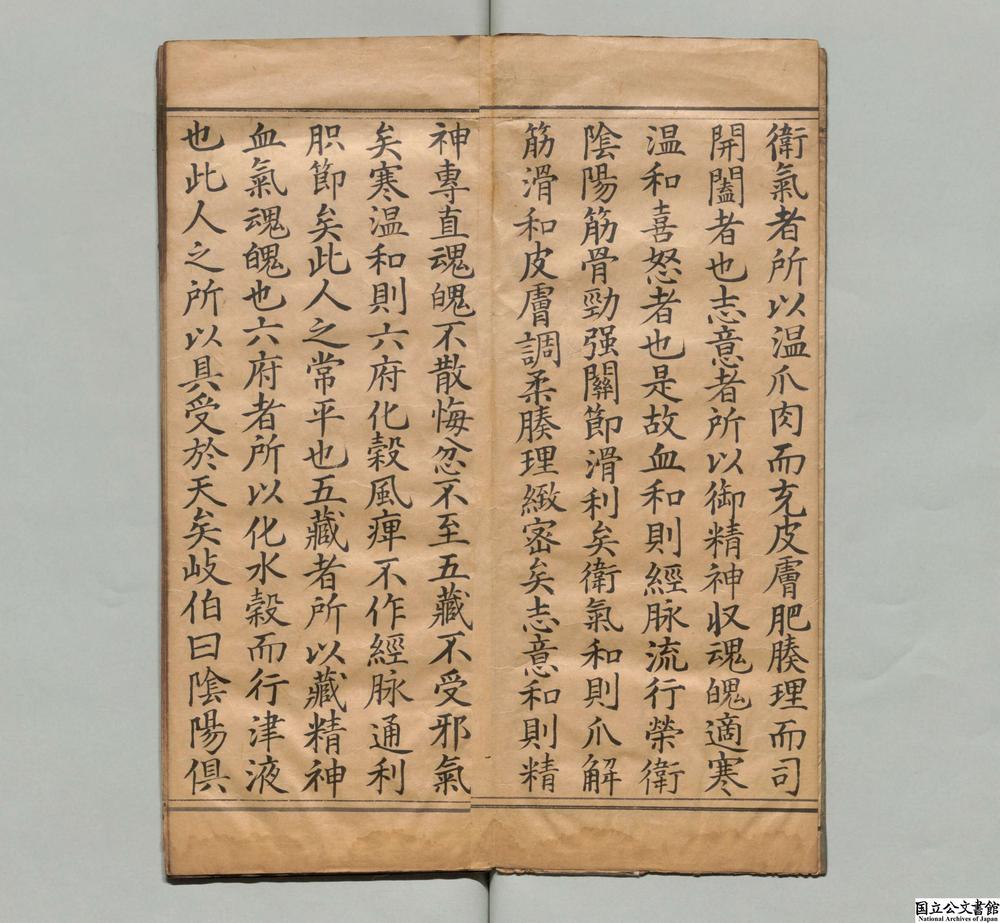 衛氣者所以温爪肉而充皮膚肥腠理而司
開闔者也志意者所以御精神収魂魄適寒
温和喜怒者也是故血和則經脉流行榮衛
陰陽筋骨勁强關節滑利矣衛氣和則爪解
筋滑和皮膚調柔腠理緻密矣志意和則精
神專直魂魄不散悔忿不至五藏不受邪氣
矣寒温和則六府化穀風痺不作經脉通利
胑節矣此人之常平也五藏者所以藏精神
血氣魂魄也六府者所以化水穀而行津液
也此人之所以具受於天矣岐伯曰陰陽俱
国立公文書館
National Archives of Japan